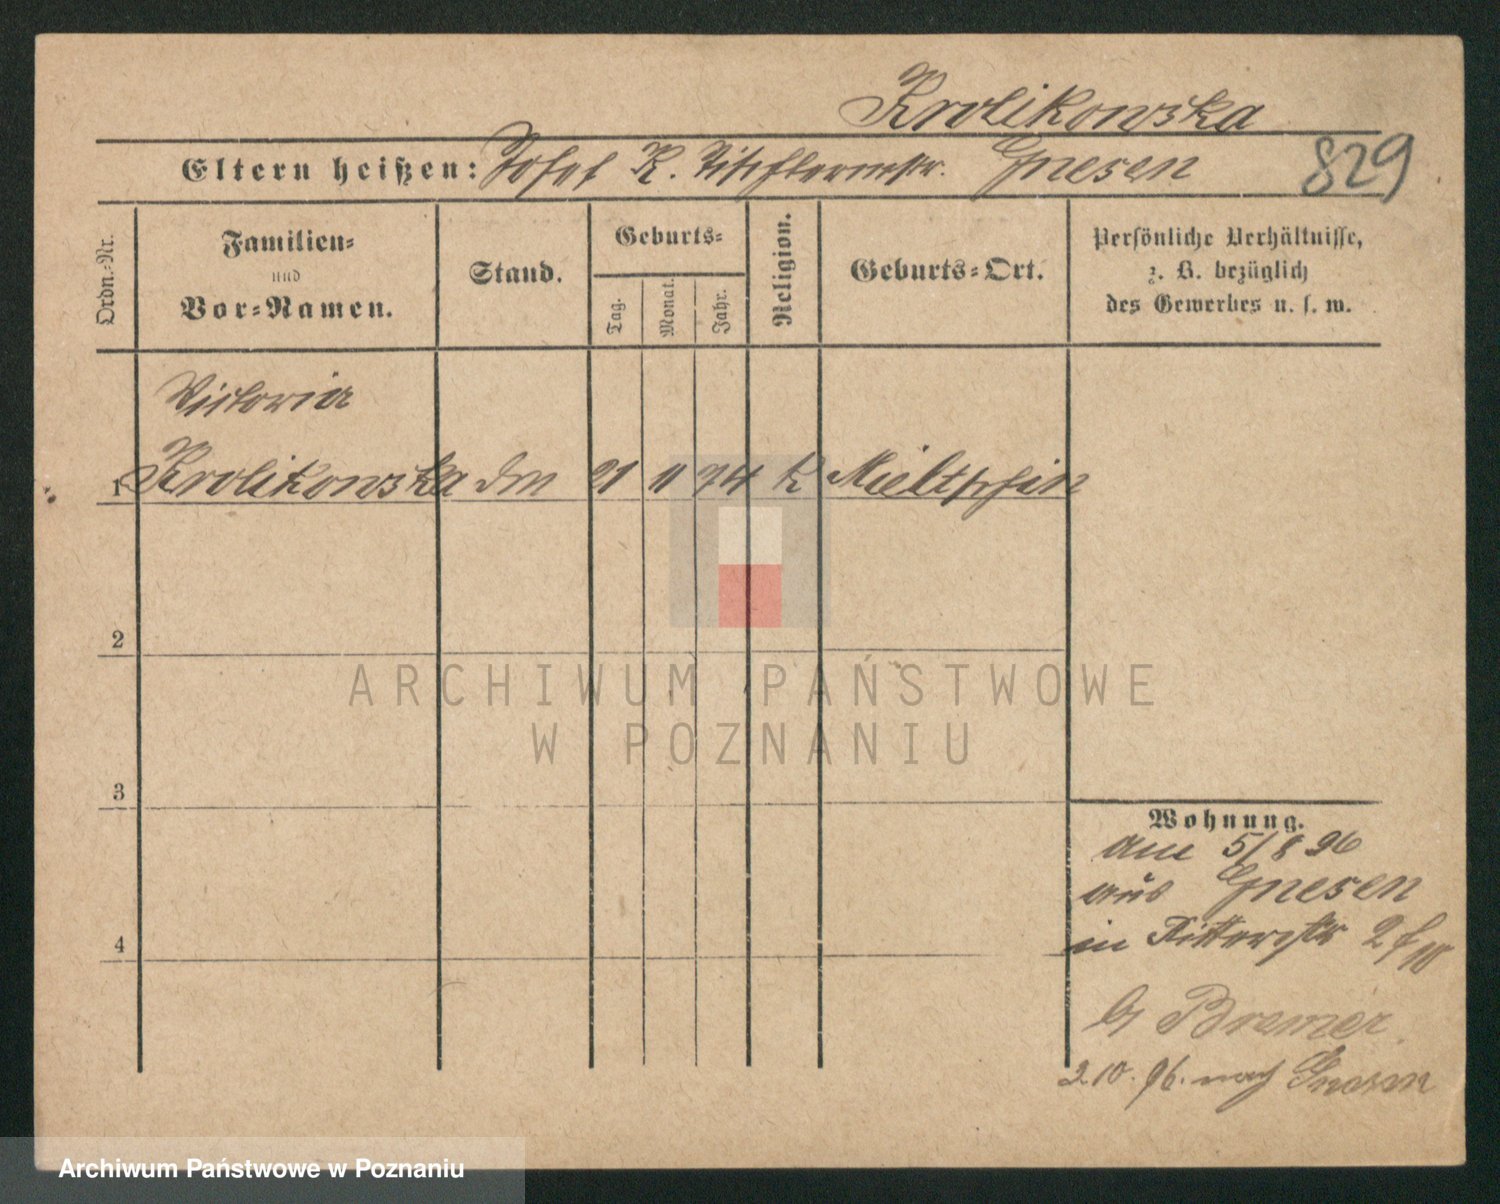 Krolikowska
Eltern heißen: Josef K. Tischlermstr. Gnesen 829
Ordn.-Nr.
Familien-
und
Vor-Namen.
Stand.
Geburts-
Tag.
Monat.
Jahr.
Religion.
Geburts-Ort.
Persönliche Verhältnisse,
z. B. bezüglich
des Gewerbes u. s. w.
Victoria
1 Krolikowska 21 11 74 K
2
3
4
Wohnung.
am 5/8 96
aus Gnesen
in Ritterstr
Bremer
2.10.96. nach Gnesen
ARCHIWUM PAŃSTWOWE
W POZNANIU
Archiwum Państwowe w Poznaniu